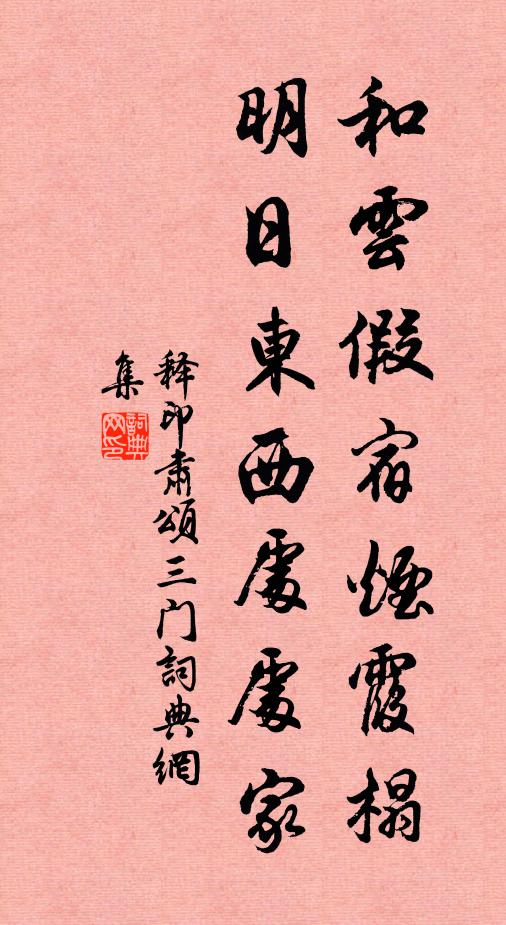 和雲假宿煙霞榻
明日東西處處家
释印肃頌三门詞典網
集
詞典
网印